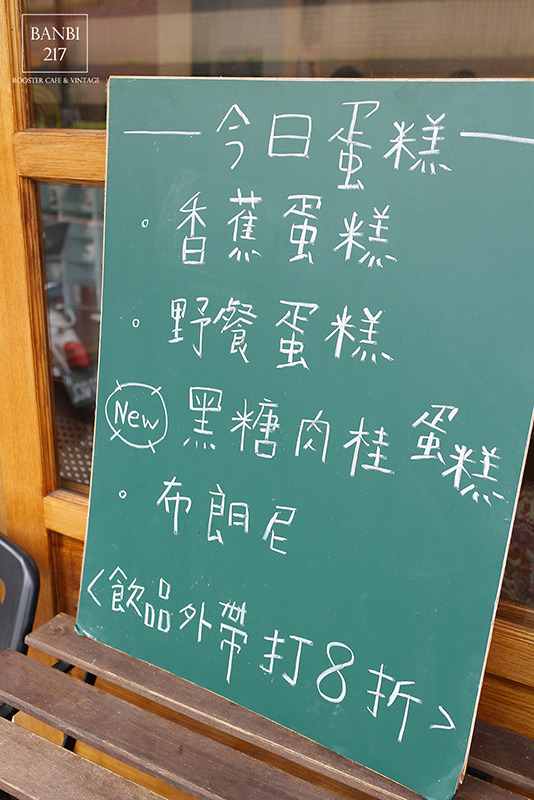 BANBI
217
ROOSTER CAFE & VINTAGE
今日蛋糕
香蕉蛋糕
野餐蛋糕
New 黑糖肉桂蛋糕
布朗尼
<飲品外帶打8折>